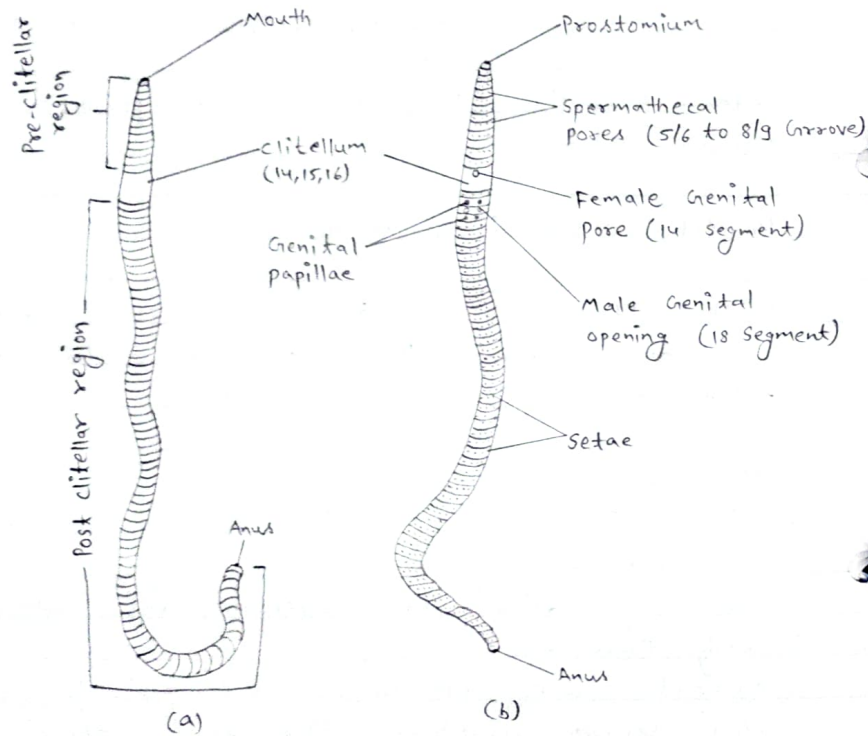 Mouth
Pre-clitellar
region
Clitellum
(14,15,16)
Genital
papillae
Post clitellar region
Anus
(a)
Prostomium
Spermathecal
pores (5/6 to 8/9 Grrove)
Female Genital
pore (14 segment)
Male Genital
opening (18 Segment)
Setae
Anus
(b)